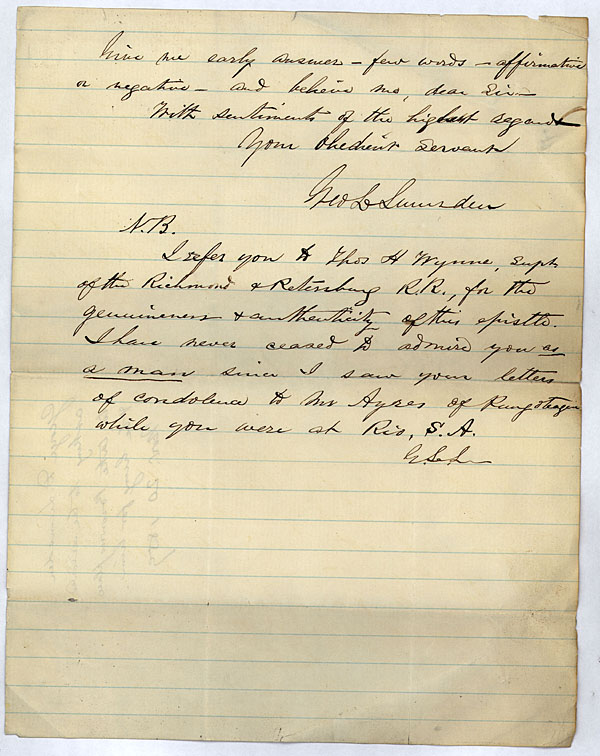 Give me early answer – few words – affirmative
or negative – and believe me, dear Sir –
With sentiments of the highest regard
Your Obedient Servant
Geo L Lumsden
N.B.
I refer you to Thos H Wynne, Supt
of the Richmond & Petersburg R.R., for the
genuineness & authenticity of this epistle.
I have never ceased to admire you as
a man since I saw your letters
of condolence to Mr Ayres of
while you were at Rio, S.A.
G.L.L.